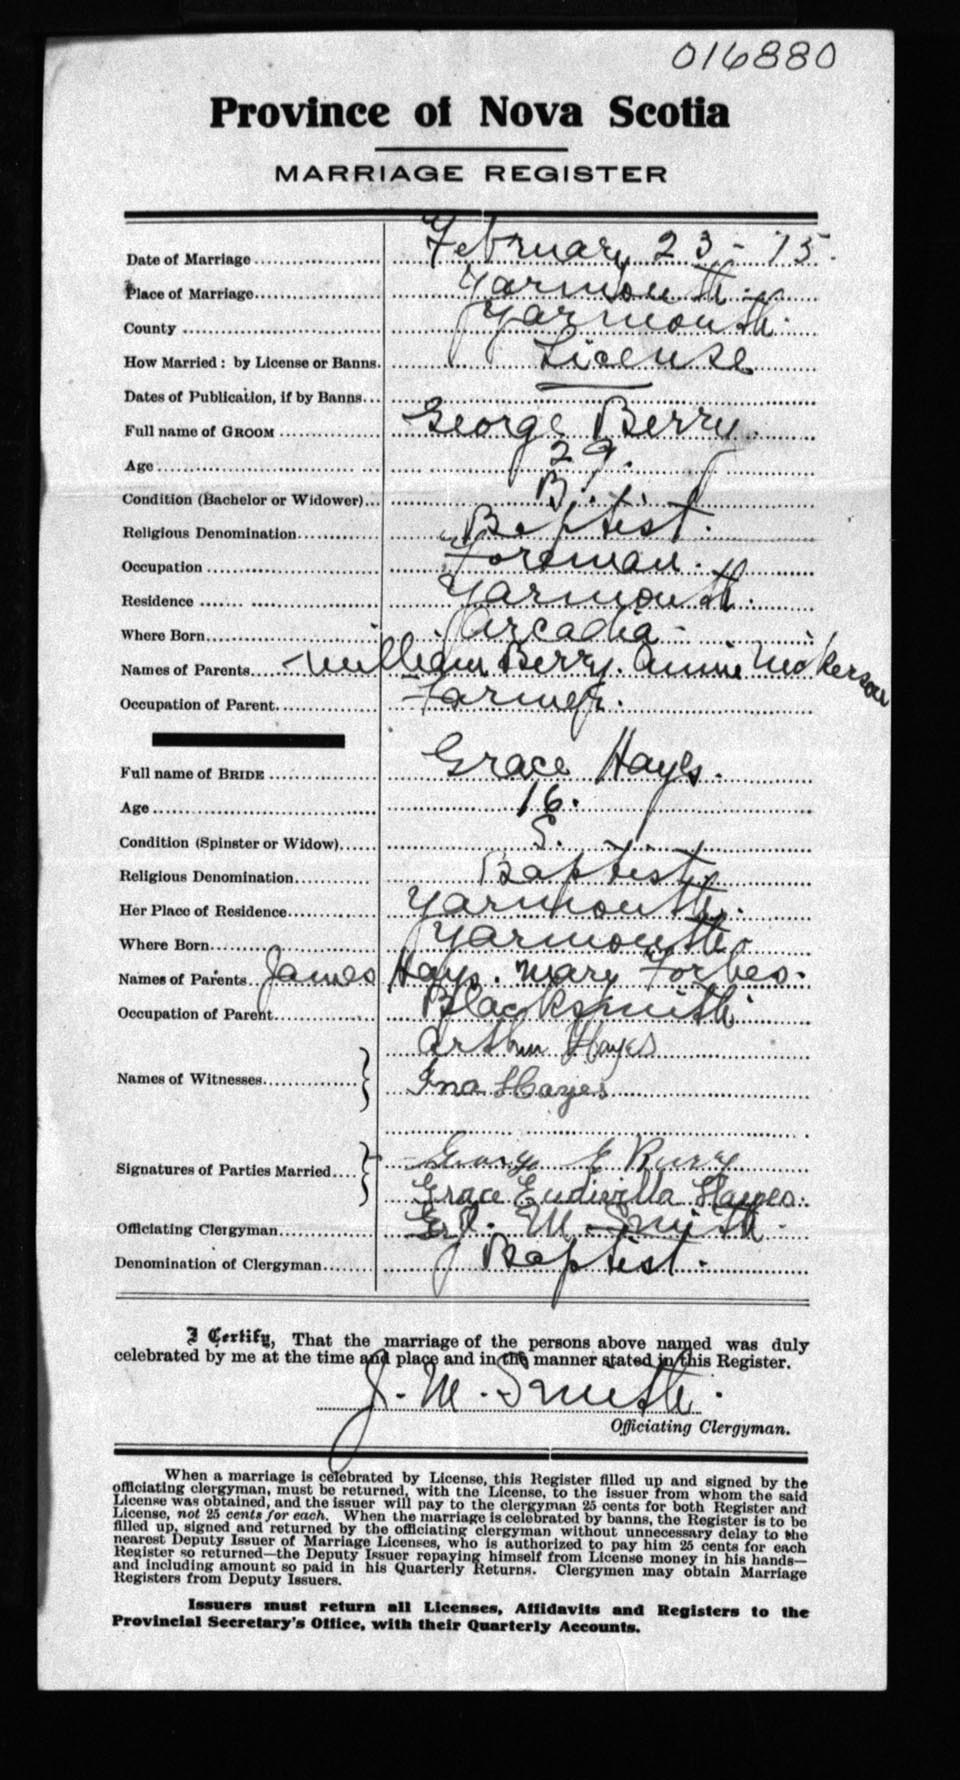 016880
Province of Nova Scotia
MARRIAGE REGISTER
Date of Marriage February 23 - 15.
Place of Marriage Yarmouth.
County Yarmouth.
How Married: by License or Banns. License
Dates of Publication, if by Banns
Full name of GROOM George Berry.
Age 29.
Condition (Bachelor or Widower) B.
Religious Denomination Baptist.
Occupation Foreman.
Residence Yarmouth.
Where Born Arcadia -
Names of Parents William Berry. Annie Nickerson
Occupation of Parent Farmer.
Full name of BRIDE Grace Hayes.
Age 16.
Condition (Spinster or Widow) S.
Religious Denomination Baptist.
Her Place of Residence Yarmouth.
Where Born Yarmouth.
Names of Parents James Hays. Mary Forbes.
Occupation of Parent Blacksmith.
Arthur Hayes
Names of Witnesses Ina Hayes
George E Berry
Signatures of Parties Married
Grace Hayes.
Officiating Clergyman M Smith.
Denomination of Clergyman Baptist.
I Certify, That the marriage of the persons above named was duly
celebrated by me at the time and place and in the manner stated in this Register.
J. M. Smith.
Officiating Clergyman.
When a marriage is celebrated by License, this Register filled up and signed by the
officiating clergyman, must be returned, with the License, to the issuer from whom the said
License was obtained, and the issuer will pay to the clergyman 25 cents for both Register and
License, not 25 cents for each. When the marriage is celebrated by banns, the Register is to be
filled up, signed and returned by the officiating clergyman without unnecessary delay to the
nearest Deputy Issuer of Marriage Licenses, who is authorized to pay him 25 cents for each
Register so returned—the Deputy Issuer repaying himself from License money in his hands—
and including amount so paid in his Quarterly Returns. Clergymen may obtain Marriage
Registers from Deputy Issuers.
Issuers must return all Licenses, Affidavits and Registers to the
Provincial Secretary's Office, with their Quarterly Accounts.